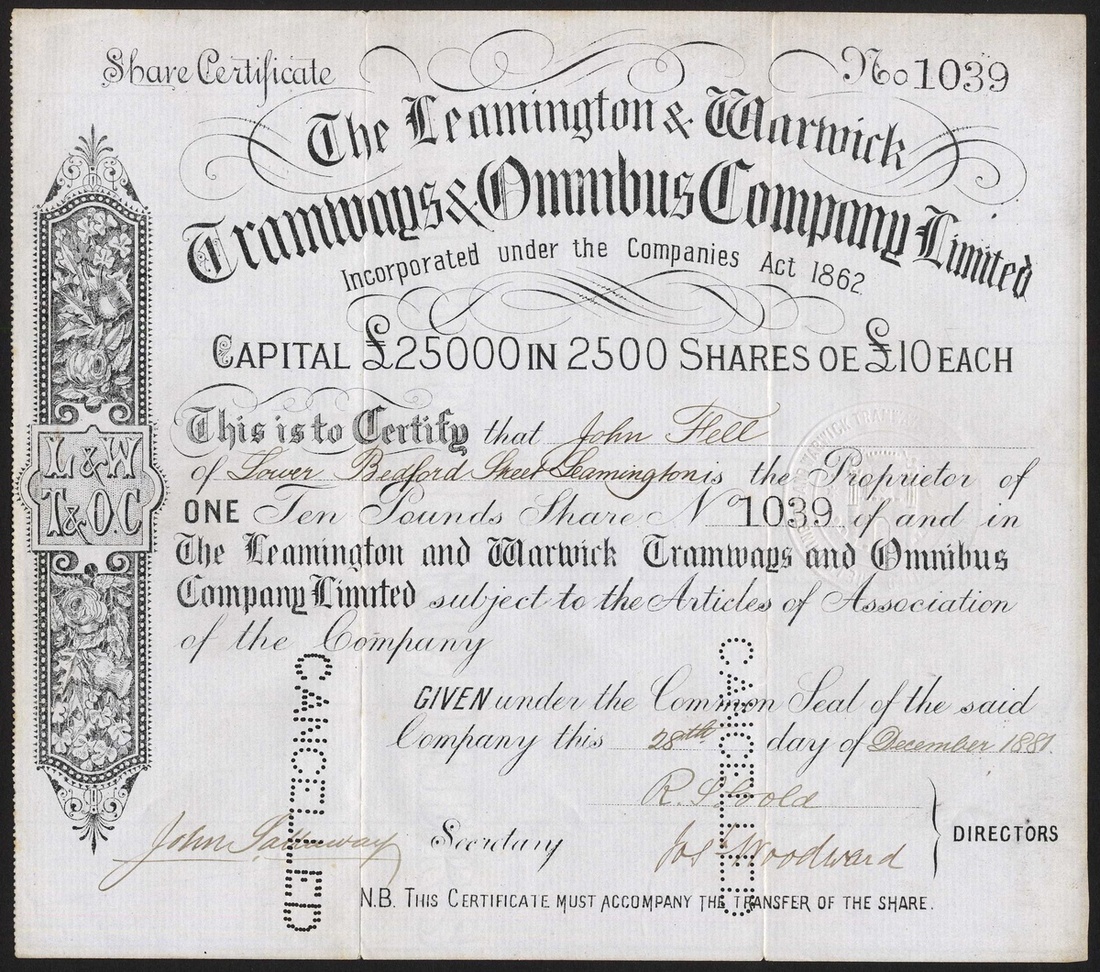 Share Certificate
No 1039
The Leamington & Warwick
Tramways & Omnibus Company Limited
Incorporated under the Companies Act 1862
CAPITAL £25000 IN 2500 SHARES OE £10 EACH
This is to Certify that John Fell
of Lower Bedford Street Leamington is the Proprietor of
ONE Ten Pounds Share No 1039 of and in
The Leamington and Warwick Tramways and Omnibus
Company Limited subject to the Articles of Association
of the Company
L & W
T & O C
GIVEN under the Common Seal of the said
Company this 28th day of December 1881.
John Secretary
Jos Woodward
DIRECTORS
N.B. THIS CERTIFICATE MUST ACCOMPANY THE TRANSFER OF THE SHARE.
CANCELLED
CANCELLED